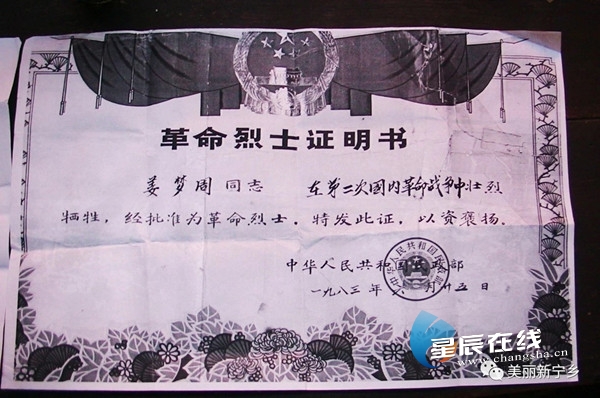 革命烈士证明书
姜梦周同志 在第二次国内革命战争中壮烈
牺牲,经批准为革命烈士。特发此证,以资褒扬。
中华人民共和国民政部
一九八三年 月廿五日
星辰在线
www.changsha.cn
美丽新宁乡